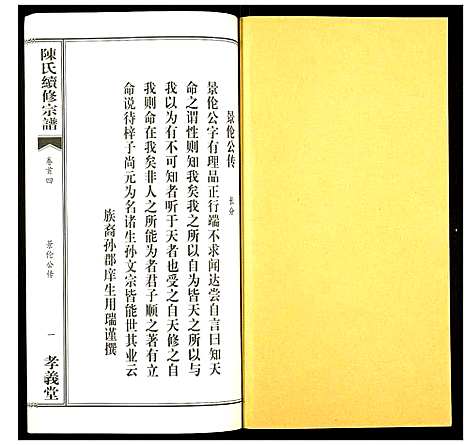 景伦公传
长分
景伦公字有理品正行端不求闻达尝自言曰知天
命之谓性则知我矣我之所以自为皆天之所以与
我以为有不可知者听于天者也受之自天修之自
我则命在我矣非人之所能为者君子顺之著有立
命说待梓子尚元为名诸生孙文宗皆能世其业云
族裔孙郡庠生用瑞谨撰
陳氏續修宗譜
卷首四
景伦公传
一
孝義堂